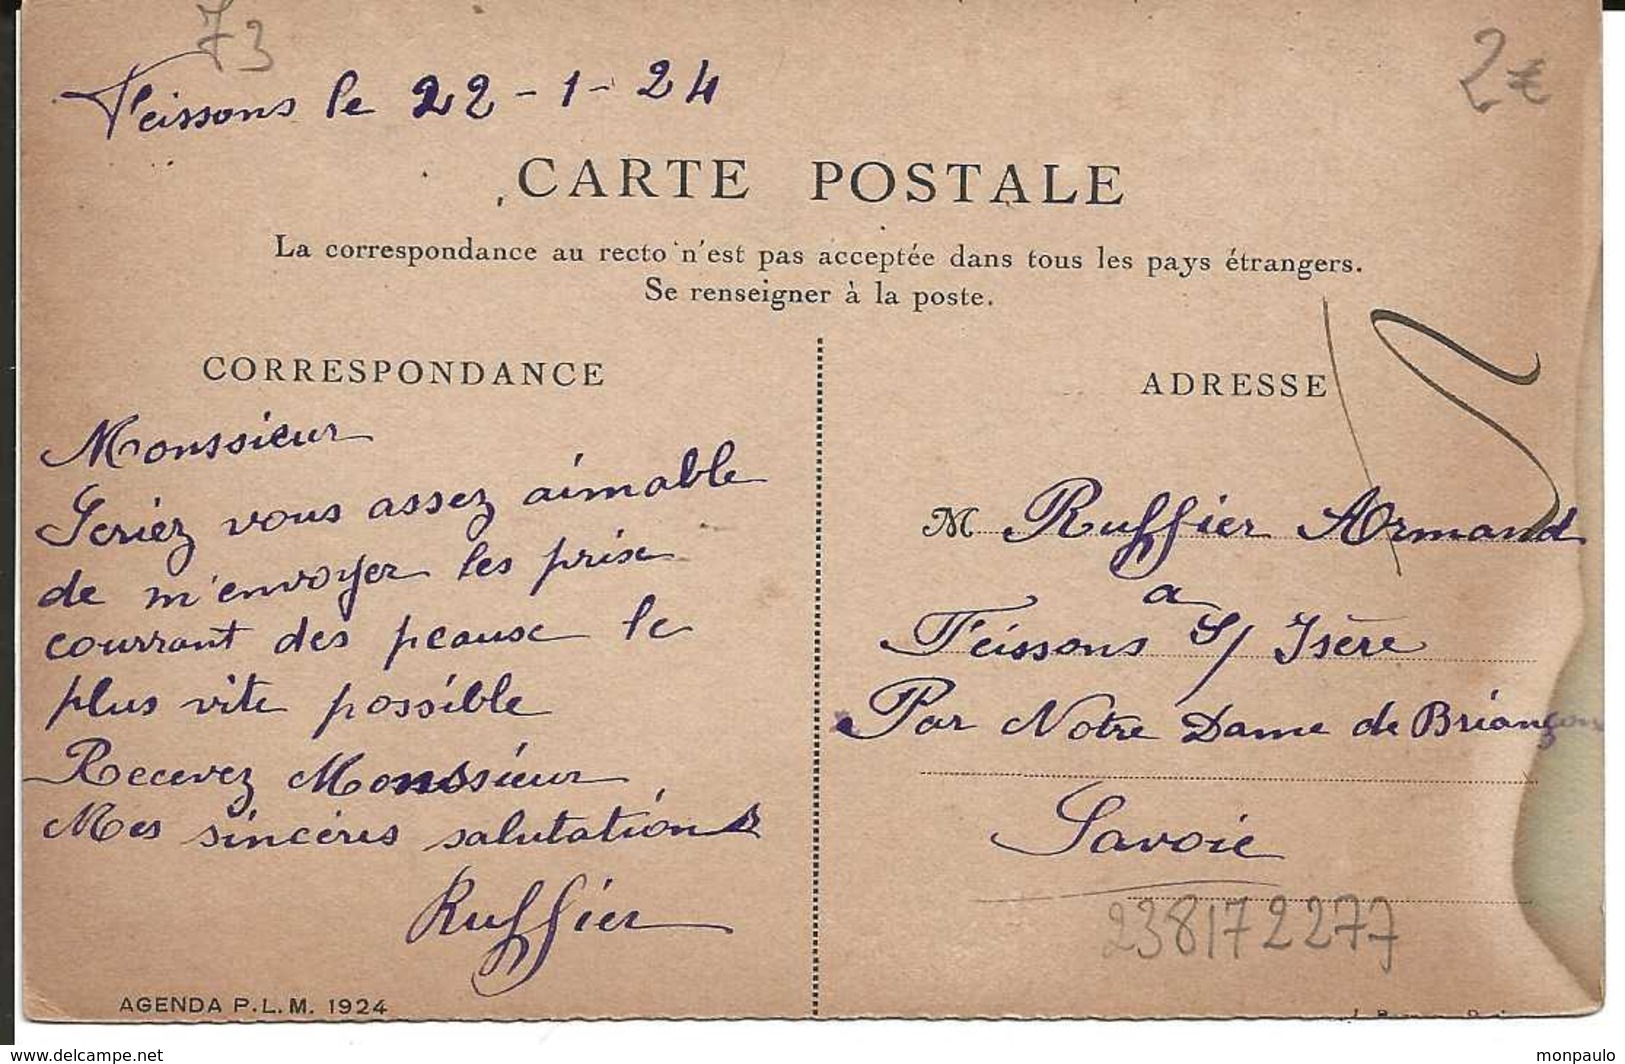 73
2€
Feissons le 22-1-24
CARTE POSTALE
La correspondance au recto n'est pas acceptée dans tous les pays étrangers.
Se renseigner à la poste.
CORRESPONDANCE
Monssieur
Seriez vous assez aimable
de m'envoyer les prix
courrant des peaux le
plus vite possible
Recevez Monssieur
Mes sincéres salutations
Ruffier
AGENDA P.L.M. 1924
ADRESSE
M Ruffier Armand
a
Feissons S/ Isère
Par Notre Dame de Briançon
Savoie
238172277
www.delcampe.net
monpaulo